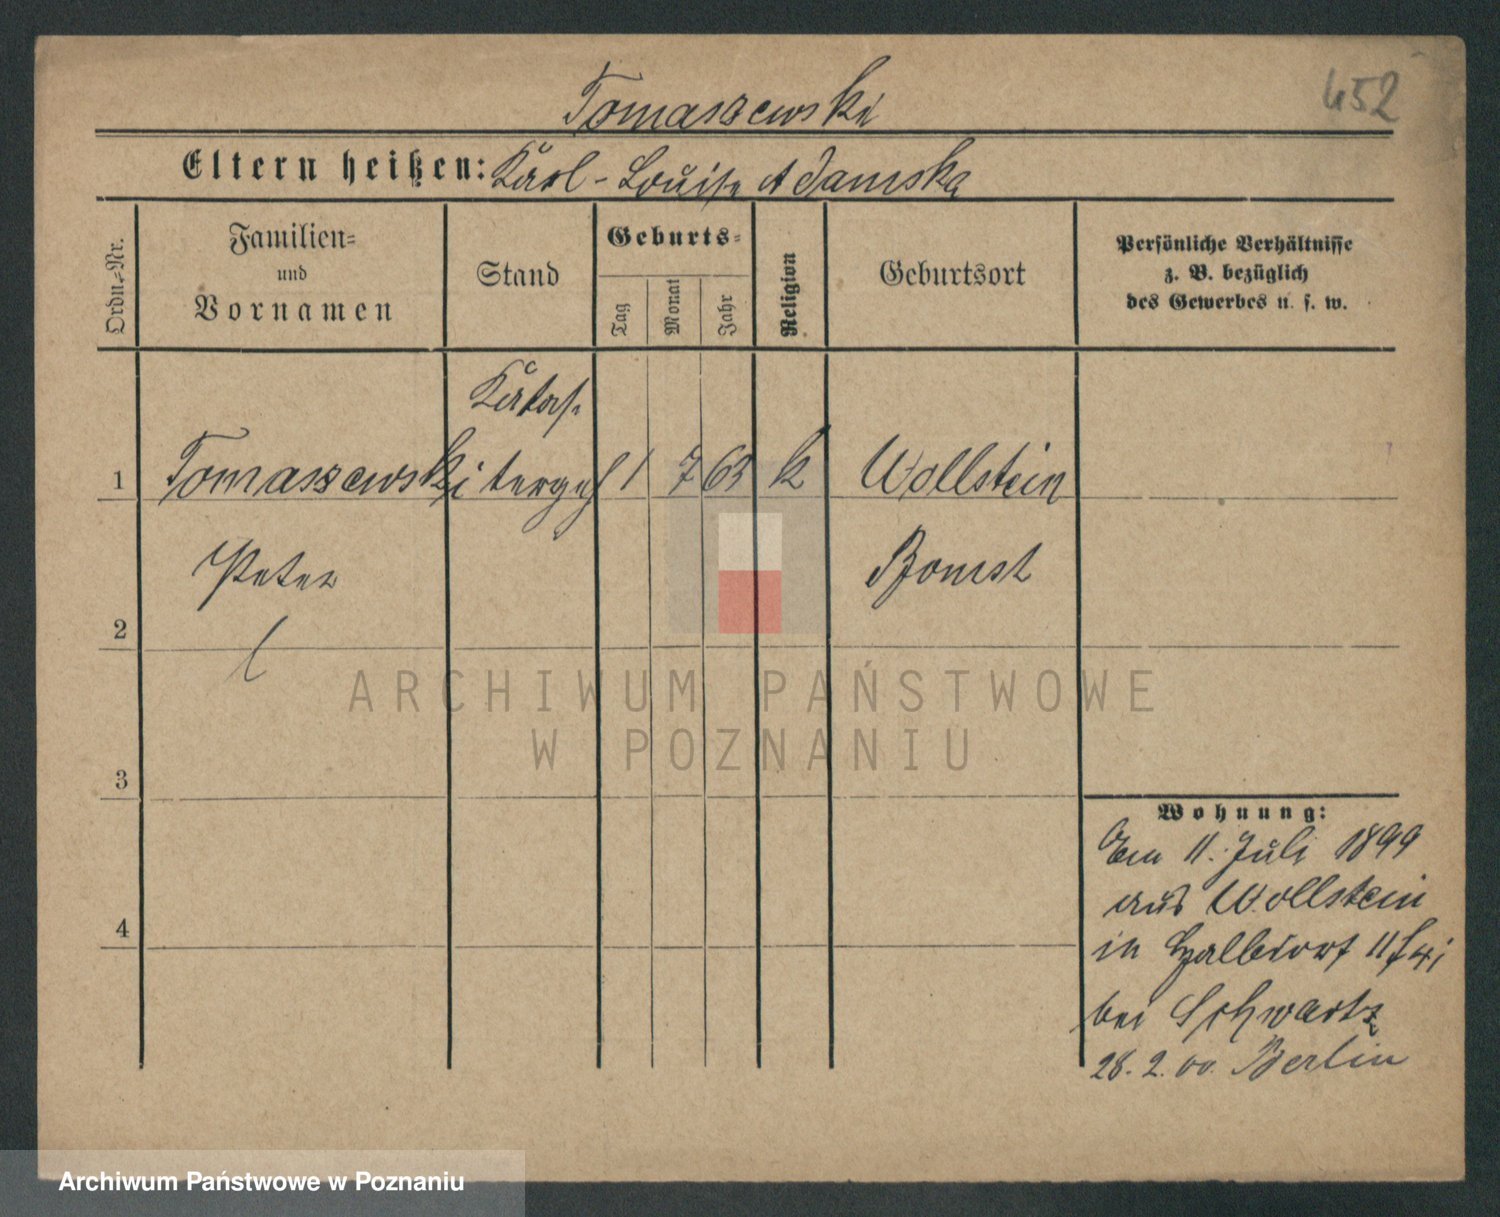 452
Tomaszewski
Eltern heißen: Karl - Louise Adamska
Ordn.-Nr.
Familien-
und
Vornamen
Stand
Geburts-
Tag
Monat
Jahr
Religion
Geburtsort
Persönliche Verhältnisse
z. B. bezüglich
des Gewerbes u. s. w.
Katas-
1 Tomaszewski 1 7 63 k Wollstein
Peter Bomst
2
3
4
Wohnung:
Am 11. Juli 1899
aus Wollstein
in Halbdorf
bei Schwartz
28. 2. 00. Berlin
ARCHIWUM PAŃSTWOWE
W POZNANIU
Archiwum Państwowe w Poznaniu